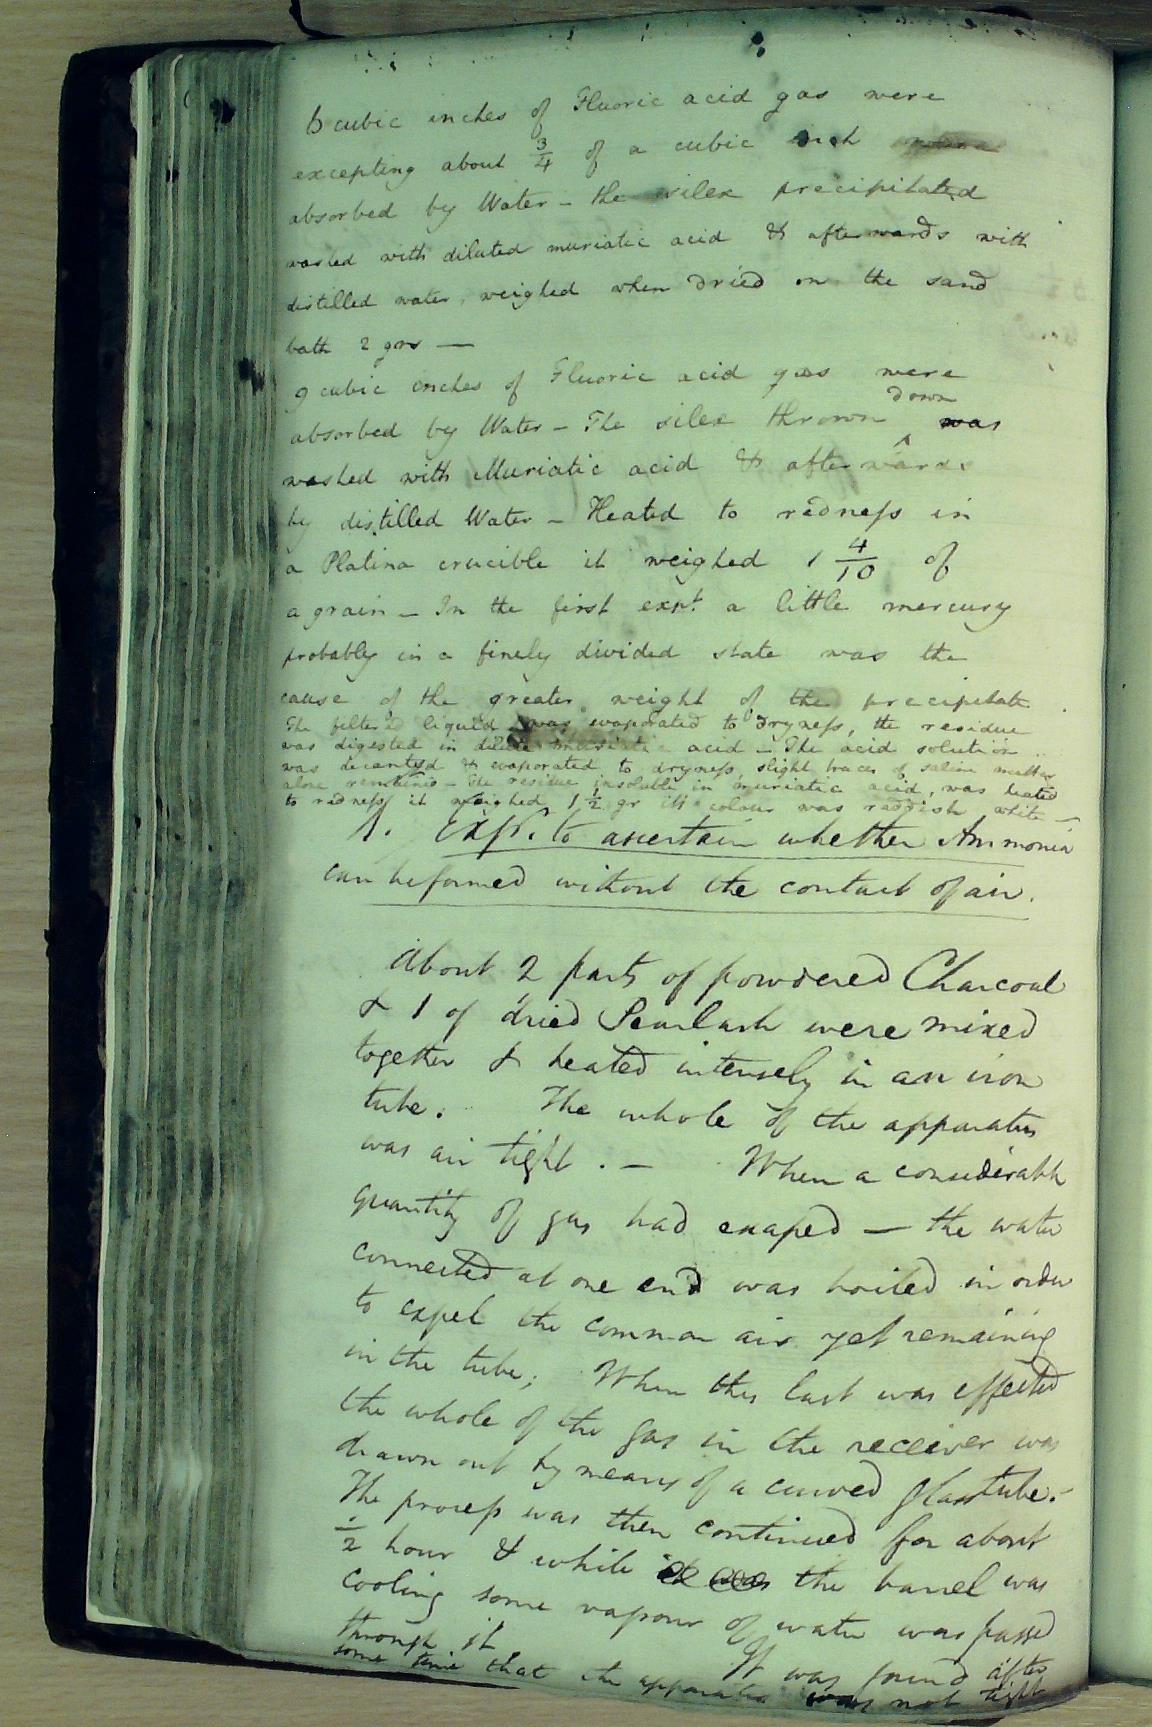 6 cubic inches of Fluoric acid gas were
excepting about 3/4 of a cubic inch
absorbed by Water – the silex precipitated
washed with diluted muriatic acid & afterwards with
distilled water, weighed when dried on the sand
bath 2 grs —
9 cubic inches of Fluoric acid gas were
down
absorbed by Water – The silex thrown ^ was
washed with Muriatic acid & afterwards
by distilled Water – Heated to redness in
a Platina crucible it weighed 1 4/10 of
a grain – In the first expt. a little mercury
probably in a finely divided state was the
cause of the greater weight of the precipitate
The filterd liquid was evaporated to dryness, the residue
was digested in dilute muriatic acid – The acid solution
was decanted & evaporated to dryness, slight traces of saline matter
alone remained – The residue insoluble in muriatic acid, was heated
to redness it weighed 1 1/2 gr its colour was reddish white –
1. Expt. to ascertain whether Ammonia
can be formed without the contact of air.
About 2 parts of powdered Charcoal
& 1 of dried Pearlash were mixed
together & heated intensely in an iron
tube. The whole of the apparatus
was air tight. – When a considerable
quantity of gas had escaped – the water
connected at one end was boiled in order
to expel the common air yet remaining
in the tube; When this last was effected
the whole of the gas in the receiver was
drawn out by means of a curved glass tube. –
The process was then continued for about
1/2 hour & while it was the barrel was
cooling some vapour of water was passed
through it It was found after
some time that the apparatus was not tight